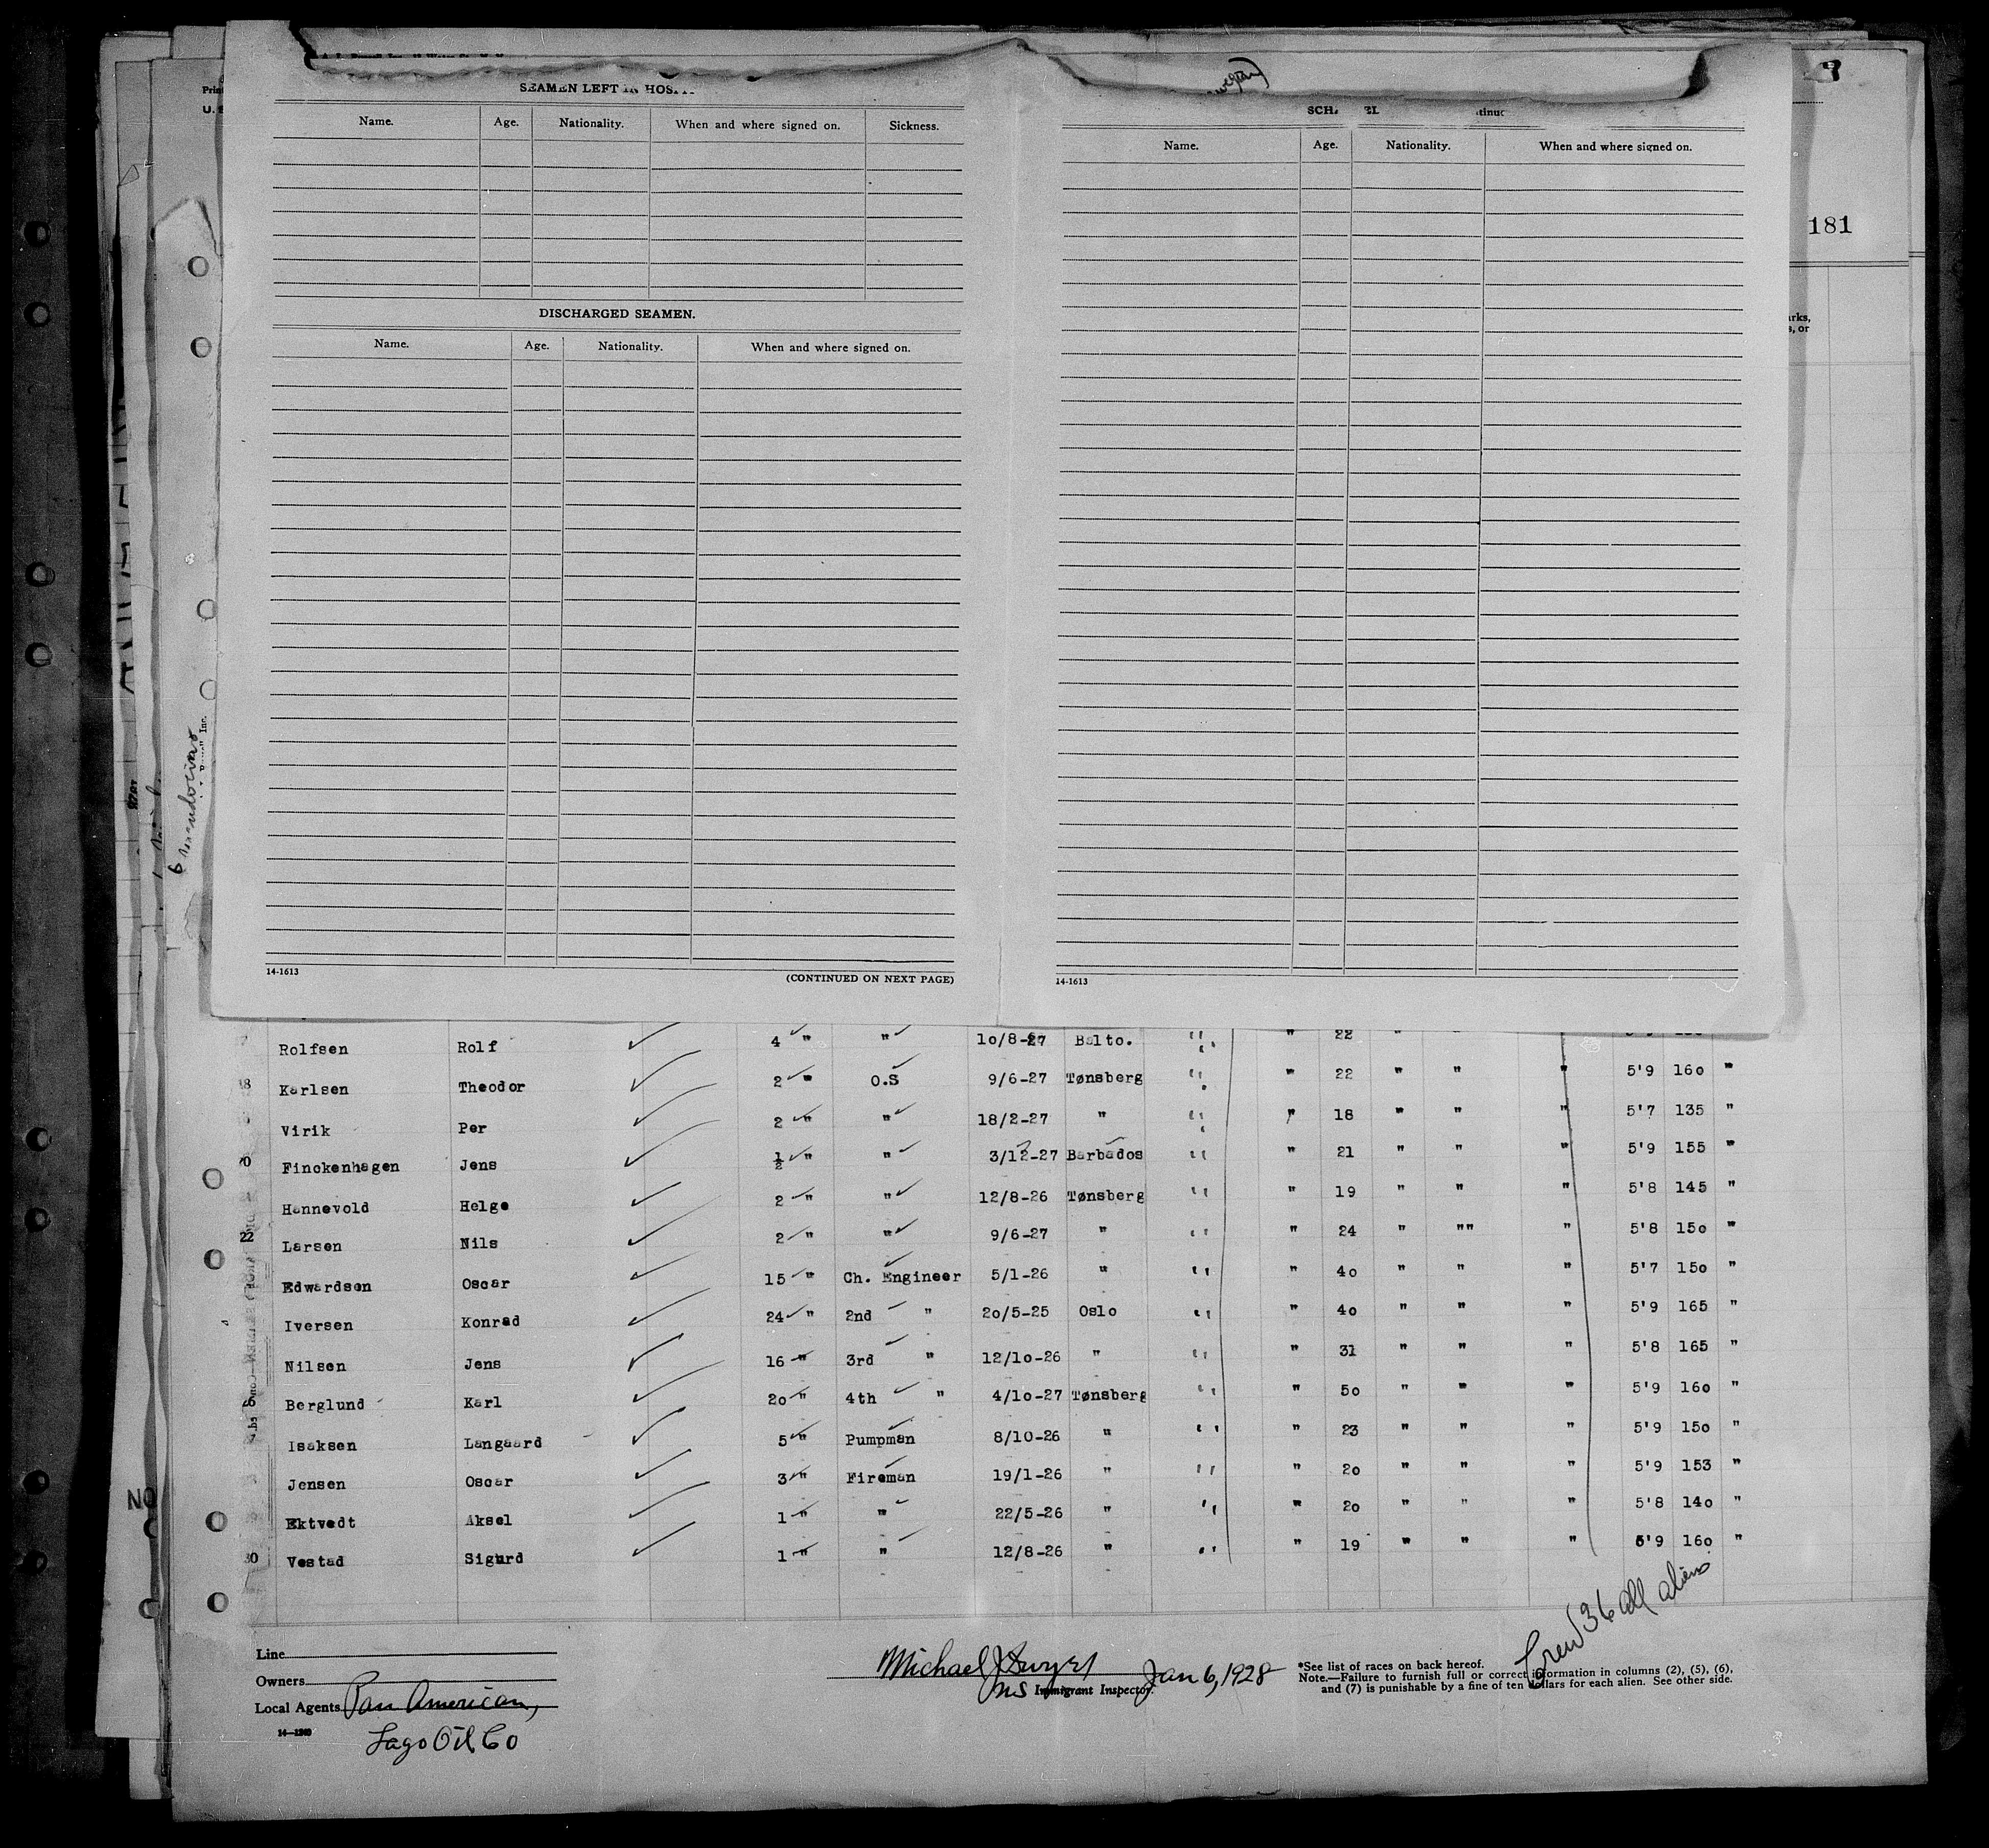 181
SEAMEN LEFT IN
Name. Age. Nationality. When and where signed on. Sickness.
DISCHARGED SEAMEN.
Name. Age. Nationality. When and where signed on.
14-1613 (CONTINUED ON NEXT PAGE)
Name. Age. Nationality. When and where signed on.
14-1613
Rolfsen Rolf 4 " " 10/8-27 Balto. " " 22 " "
18 Karlsen Theodor 2 " O.S 9/6-27 Tønsberg " " 22 " " " 5'9 160 "
Virik Per 2 " " 18/2-27 " " " 18 " " " 5'7 135 "
20 Finckenhagen Jens ½ " " 3/12-27 Barbados " " 21 " " " 5'9 155 "
Hannevold Helge 2 " " 12/8-26 Tønsberg " " 19 " " " 5'8 145 "
22 Larsen Nils 2 " " 9/6-27 " " " 24 " "" " 5'8 150 "
Edwardsen Oscar 15 " Ch. Engineer 5/1-26 " " " 40 " " " 5'7 150 "
Iversen Konrad 24 " 2nd " 20/5-25 Oslo " " 40 " " " 5'9 165 "
Nilsen Jens 16 " 3rd " 12/10-26 " " " 31 " " " 5'8 165 "
Berglund Karl 20 " 4th " 4/10-27 Tønsberg " " 50 " " " 5'9 160 "
Isaksen Langaard 5 " Pumpman 8/10-26 " " " 23 " " " 5'9 150 "
Jensen Oscar 3 " Fireman 19/1-26 " " " 20 " " " 5'9 153 "
Ektvedt Aksel 1 " " 22/5-26 " " " 20 " " " 5'8 140 "
30 Vestad Sigurd 1 " " 12/8-26 " " " 19 " " " 5'9 160 "
Crew 36 all aliens
Line
Owners
Local Agents Pan American,
Lago Oil Co
Michael J Dwyer Jan 6, 1928
Ins Immigrant Inspector.
*See list of races on back hereof.
Note.—Failure to furnish full or correct information in columns (2), (5), (6),
and (7) is punishable by a fine of ten dollars for each alien. See other side.